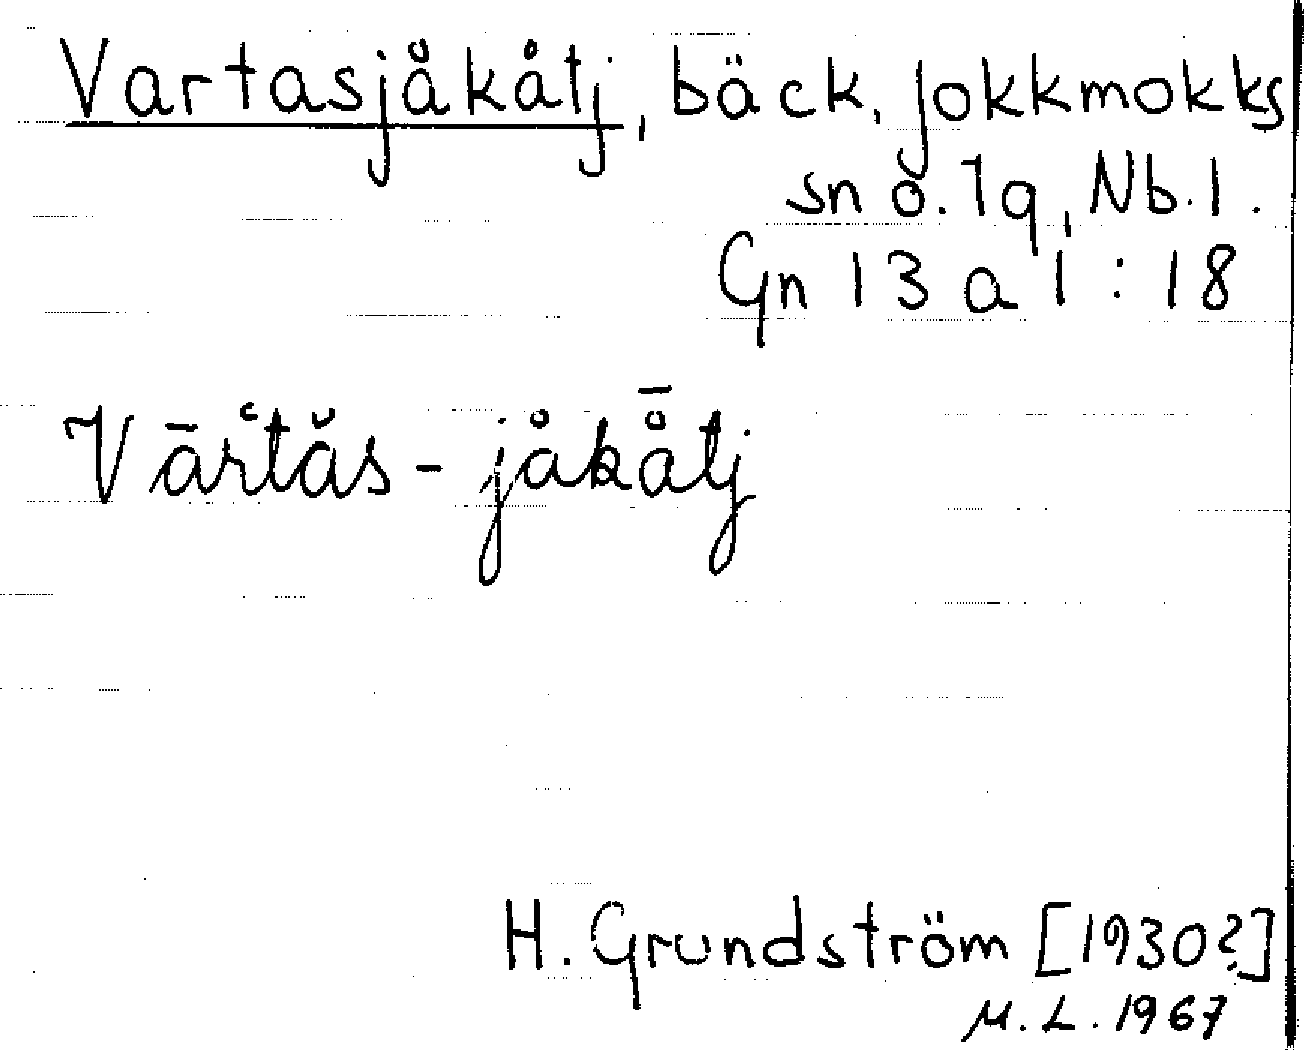 Vartasjåkåtj, bäck, Jokkmokks
sn ö. lq, Nb. l.
Gn 13 a 1 : 18
Vārʻtăs - jåkå̄tj
H. Grundström [1930?]
M. L. 1967